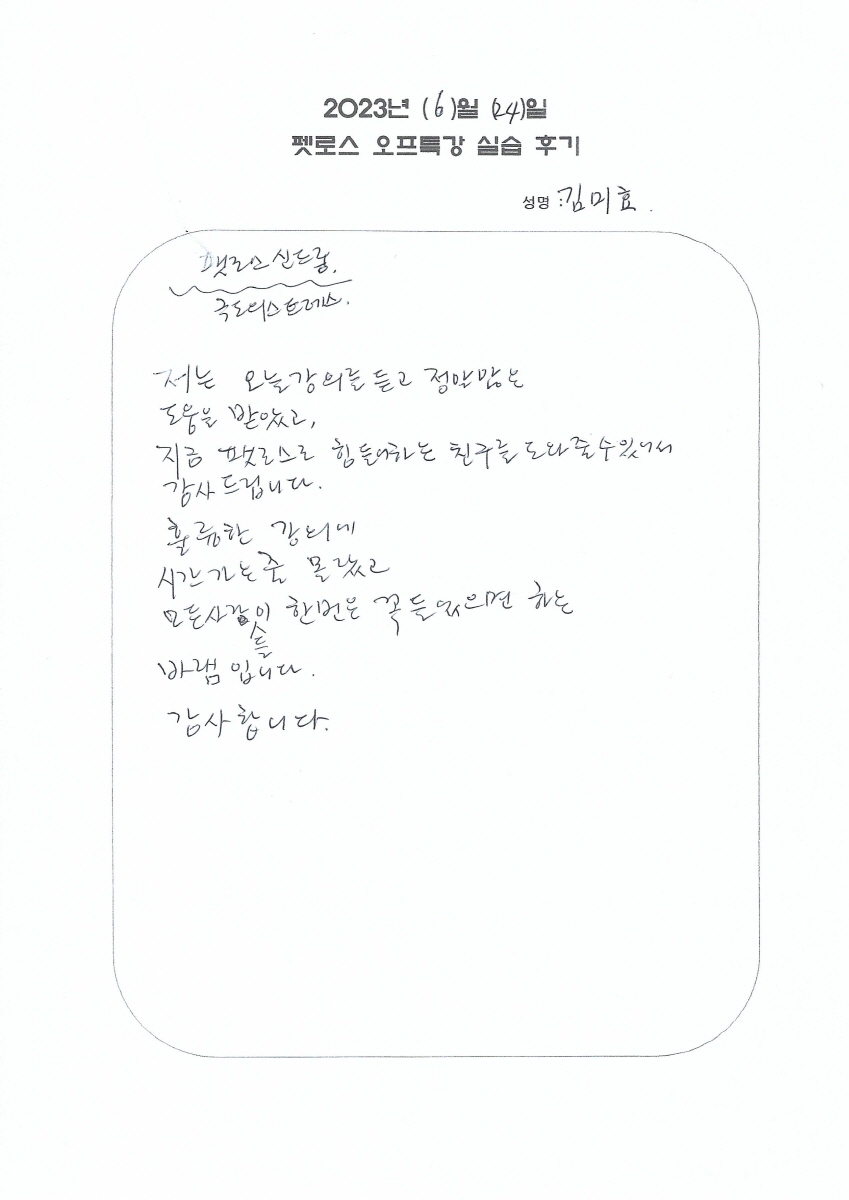 2023년 (6)월 (24)일
펫로스 오프특강 실습 후기
성명 : 김미효.
팻로스 신드롬.
극도의스트레스.
저는 오늘강의를 듣고 정말많은
도움을 받았고,
지금 팻로스로 힘들어하는 친구를 도와줄수있어서
감사드립니다.
훌륭한 강의에
시간가는줄 몰랐고
모든사람이 한번은 꼭 들었으면 하는
들
바램입니다.
감사합니다.